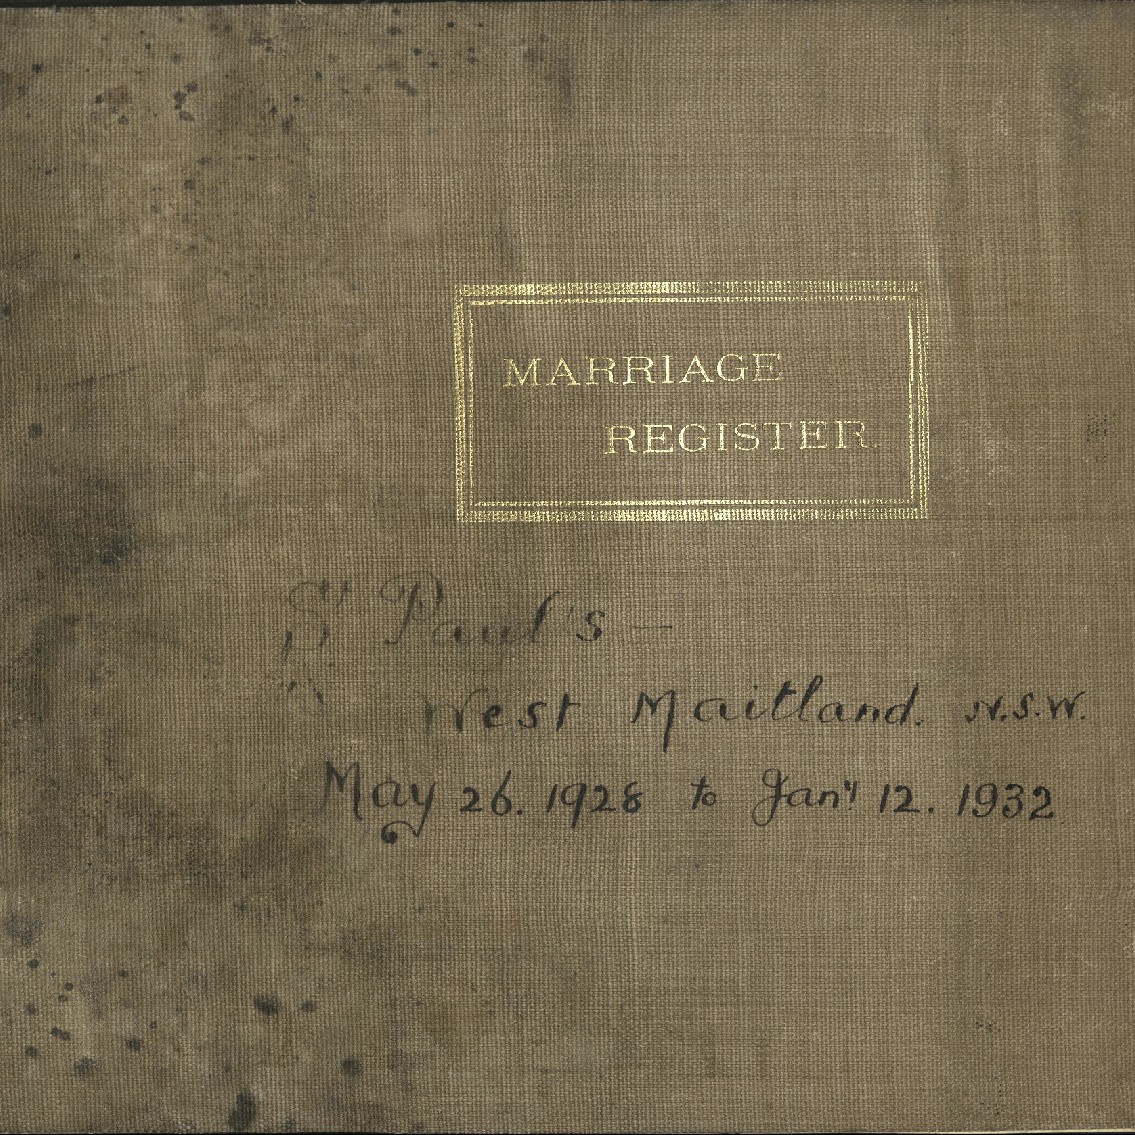 MARRIAGE
REGISTER.
St Paul's —
West Maitland. N.S.W.
May 26. 1928 to Jany 12. 1932